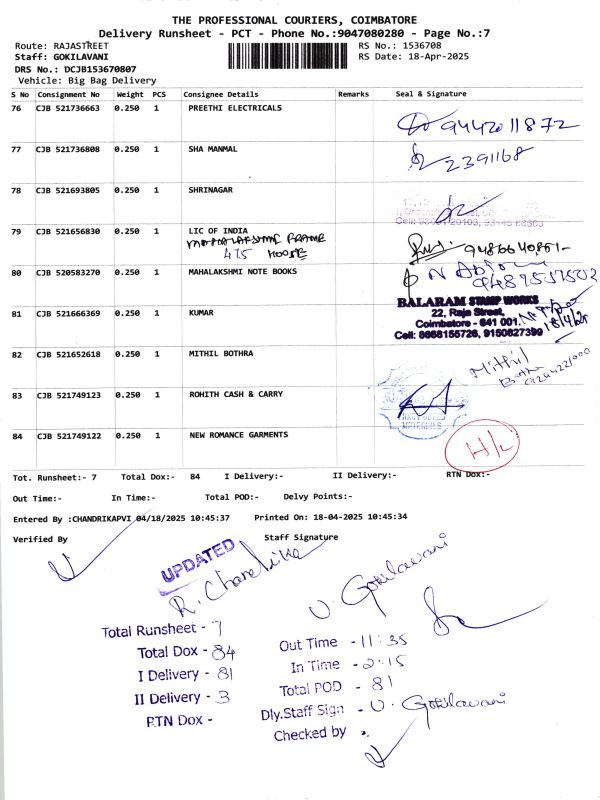 THE PROFESSIONAL COURIERS, COIMBATORE
Delivery Runsheet - PCT - Phone No.:9047080280 - Page No.:7
Route: RAJASTREET RS No.: 1536708
Staff: GOKILAVANI RS Date: 18-Apr-2025
DRS No.: DCJB153670807
Vehicle: Big Bag Delivery
S No Consignment No Weight PCS Consignee Details Remarks Seal & Signature
76 CJB 521736663 0.250 1 PREETHI ELECTRICALS 9442011872
77 CJB 521736808 0.250 1 SHA MANMAL 2391168
78 CJB 521693805 0.250 1 SHRINAGAR
79 CJB 521656830 0.250 1 LIC OF INDIA
475 HOUSE
80 CJB 520583270 0.250 1 MAHALAKSHMI NOTE BOOKS
BALARAM STAMP WORKS
22, Raja Street,
Coimbatore - 641 001.
Cell: 8668155726, 9150827399
18/4/25
81 CJB 521666369 0.250 1 KUMAR
82 CJB 521652618 0.250 1 MITHIL BOTHRA Mithil
83 CJB 521749123 0.250 1 ROHITH CASH & CARRY
84 CJB 521749122 0.250 1 NEW ROMANCE GARMENTS H/L
Tot. Runsheet:- 7 Total Dox:- 84 I Delivery:- II Delivery:- RTN Dox:-
Out Time:- In Time:- Total POD:- Delvy Points:-
Entered By :CHANDRIKAPVI 04/18/2025 10:45:37 Printed On: 18-04-2025 10:45:34
Verified By Staff Signature
UPDATED
R. Chandrika
U. Gokilavani
Total Runsheet - 7
Total Dox - 84
I Delivery - 81
II Delivery - 3
RTN Dox -
Out Time - 11:35
In Time - 2:15
Total POD - 81
Dly.Staff Sign - U. Gokilavani
Checked by